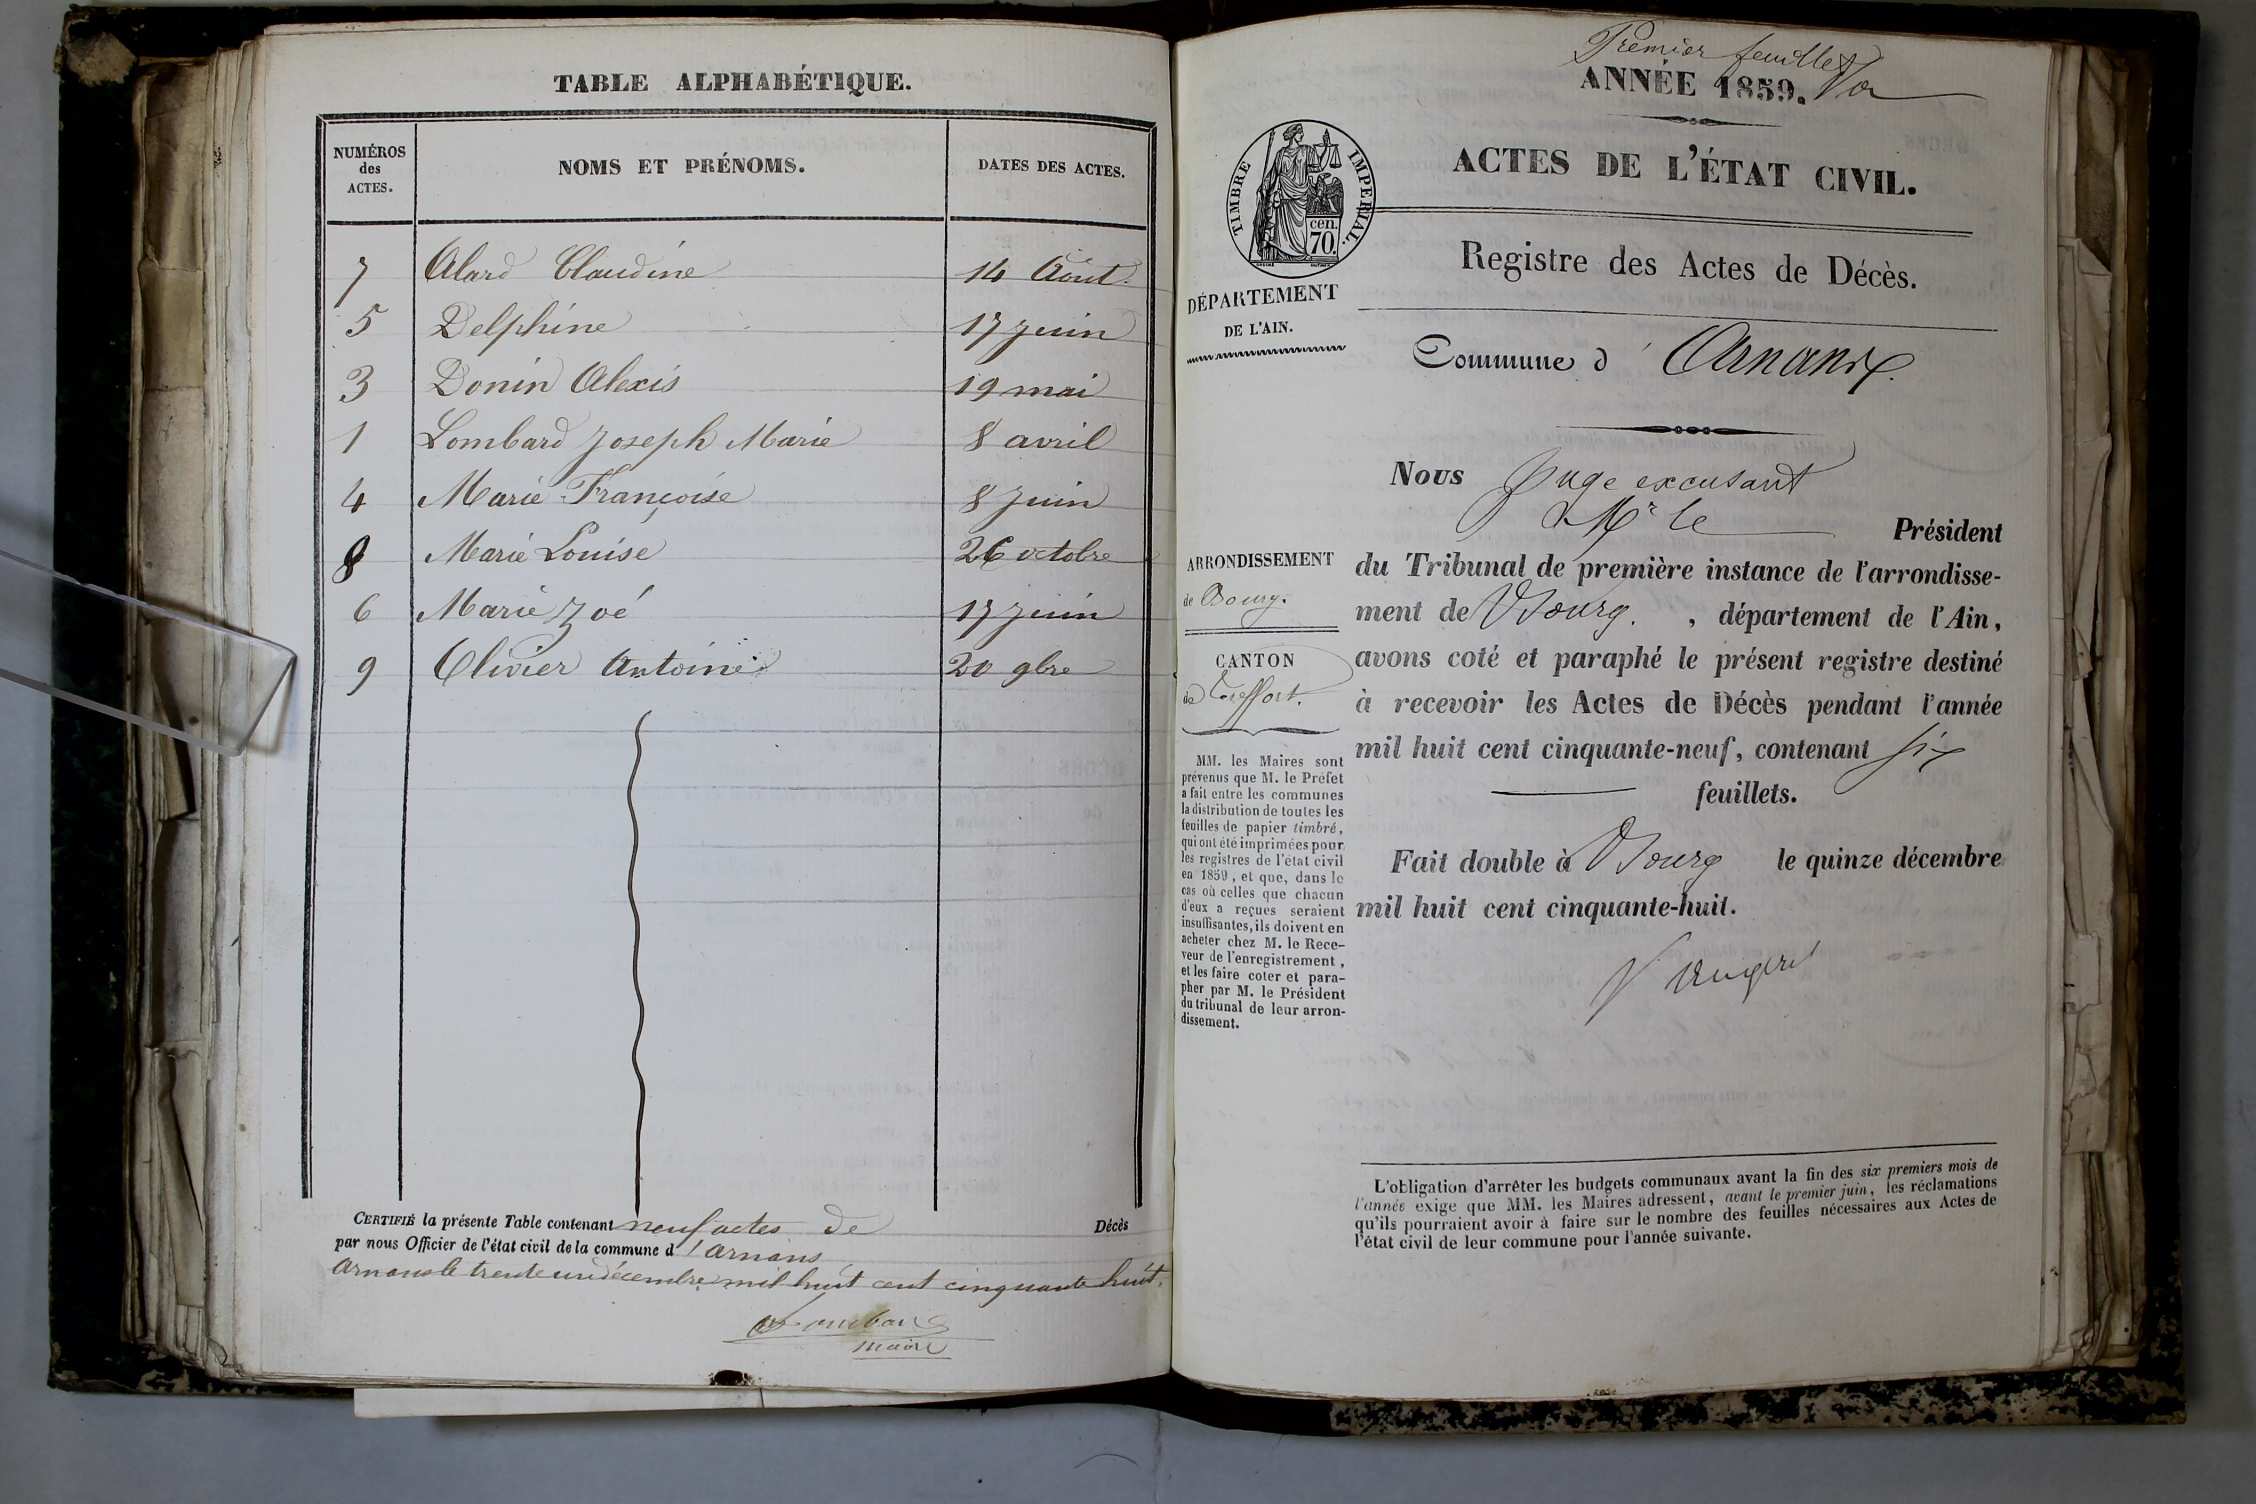 TABLE ALPHABÉTIQUE.
NUMÉROS
des
ACTES.
NOMS ET PRÉNOMS.
DATES DES ACTES.
7 Alard Claudine 14 Août
5 Delphine 17 juin
3 Donin Alexis 19 mai
1 Lombard Joseph Marie 8 avril
4 Marie Françoise 8 juin
8 Marie Louise 26 octobre
6 Marie Zoé 17 juin
9 Olivier Antoine 20 9bre
CERTIFIÉ la présente Table contenant neuf actes de Décès
par nous Officier de l'état civil de la commune d'Arnans
Arnans le trente un décembre mil huit cent cinquante huit.
Lombard
maire
Premier feuillet
ANNÉE 1859.
ACTES DE L'ÉTAT CIVIL.
TIMBRE IMPERIAL.
cen.
70.
Registre des Actes de Décès.
DÉPARTEMENT
DE L'AIN.
Commune d'Arnans.
Nous Juge excusant
Mr le Président
du Tribunal de première instance de l'arrondisse-
ment de Bourg. , département de l'Ain,
avons coté et paraphé le présent registre destiné
à recevoir les Actes de Décès pendant l'année
mil huit cent cinquante-neuf, contenant six
feuillets.
Fait double à Bourg le quinze décembre
mil huit cent cinquante-huit.
ARRONDISSEMENT
de Bourg.
CANTON
de Treffort.
MM. les Maires sont
prévenus que M. le Préfet
a fait entre les communes
la distribution de toutes les
feuilles de papier timbré,
qui ont été imprimées pour
les registres de l'état civil
en 1859, et que, dans le
cas où celles que chacun
d'eux a reçues seraient
insuffisantes, ils doivent en
acheter chez M. le Rece-
veur de l'enregistrement,
et les faire coter et para-
pher par M. le Président
du tribunal de leur arron-
dissement.
L'obligation d'arrêter les budgets communaux avant la fin des six premiers mois de
l'année exige que MM. les Maires adressent, avant le premier juin, les réclamations
qu'ils pourraient avoir à faire sur le nombre des feuilles nécessaires aux Actes de
l'état civil de leur commune pour l'année suivante.